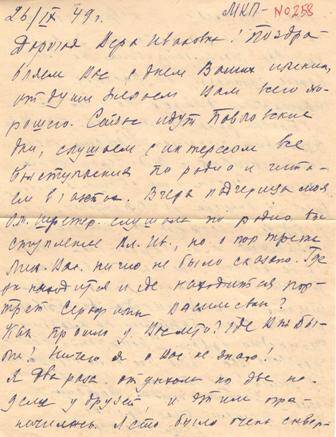 26/IX 49г. МКП-№258
Дорогая Вера Ивановна! Поздра-
вляем Вас с днем Ваших именин,
от души желаем Вам всего хо-
рошего. Сейчас идут Павловские
дни, слушаем с интересом все
выступления по радио и чита-
ем в газетах. Вчера падчерица моя
слушала по радио вы-
ступление Ал. Ив., но о портрете
ничего не было сказано. Где
он находится и где находится пор-
трет Серафимы Васильевны?
Как прошло у Вас лето? Где Вы бы-
ли? Ничего я о Вас не знаю!
Я два раза отдыхала по две не-
дели у друзей и этим огра-
ничилась. Лето было очень сквер-